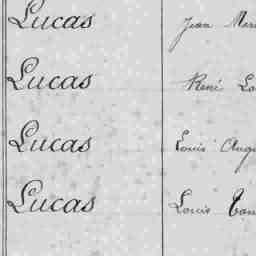 Lucas Jean Mari
Lucas René Lo
Lucas Louis Augu
Lucas Louis